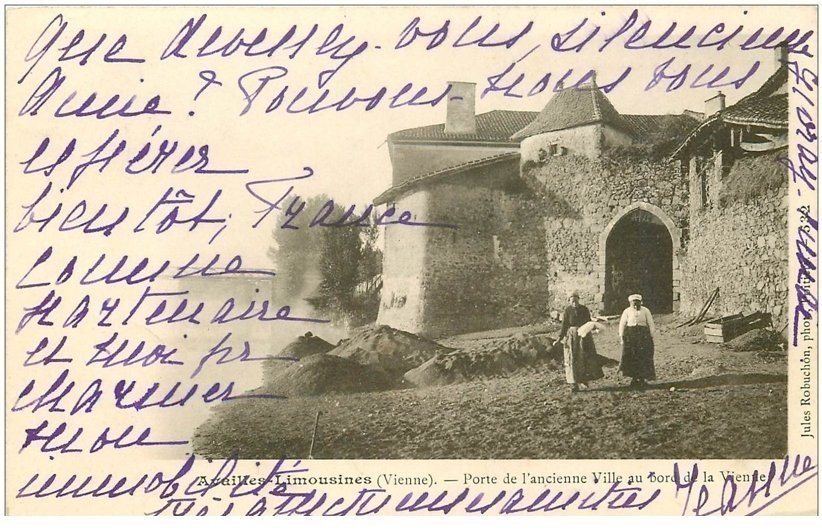 Que devenez-vous, silencieuse
Amie? Pouvons-nous vous
espérer
bientôt, France
comme
partenaire
et moi pr
charmer
mon
immobilité
Jeanne
Availles-Limousines (Vienne). — Porte de l'ancienne Ville au bord de la Vienne
Jules Robuchon, phot